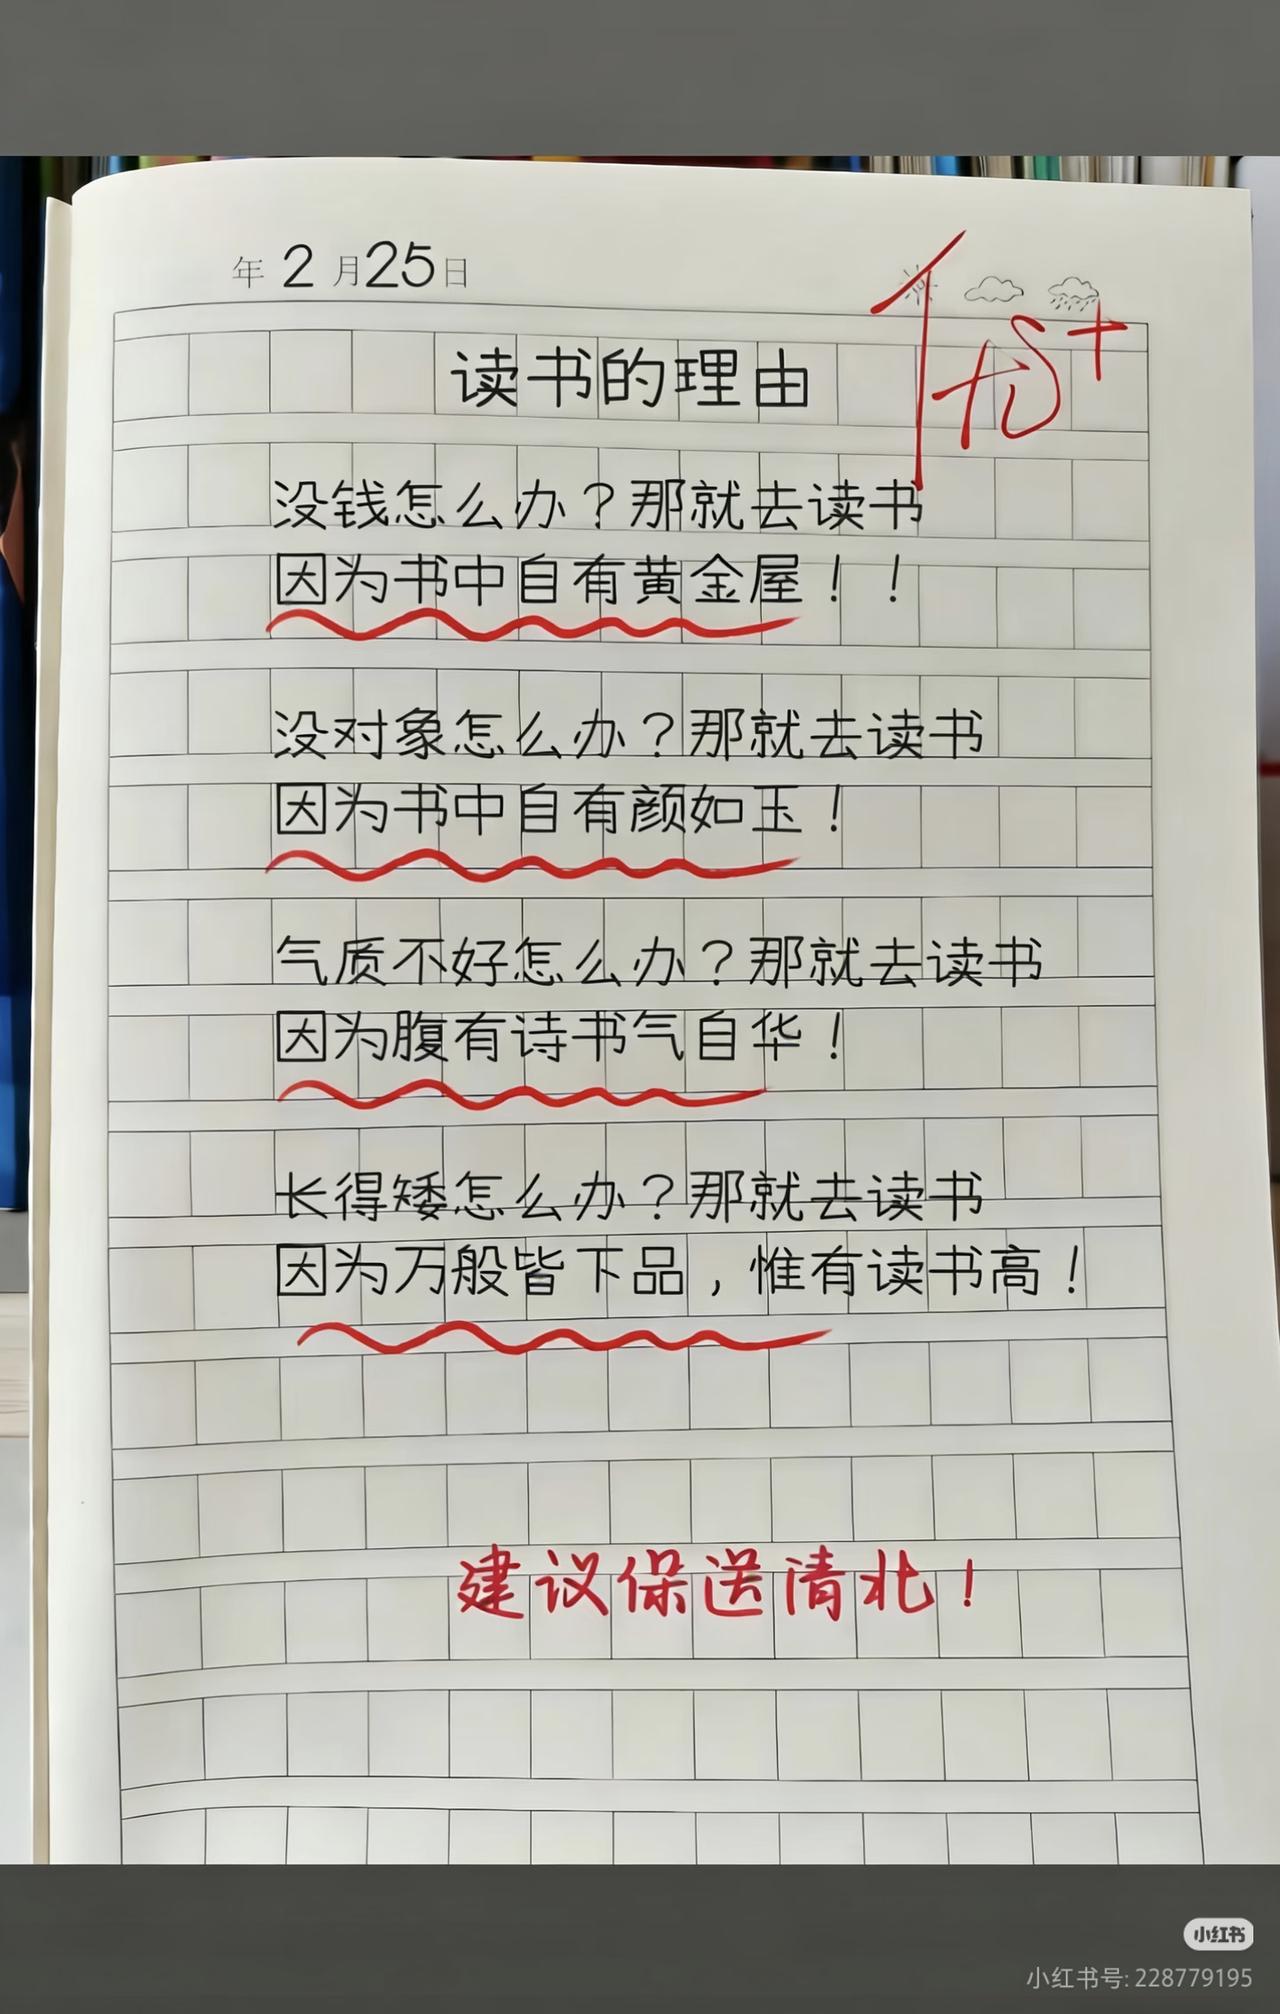 年 2 月 25 日
优+
读书的理由
没钱怎么办？那就去读书
因为书中自有黄金屋！！
没对象怎么办？那就去读书
因为书中自有颜如玉！
气质不好怎么办？那就去读书
因为腹有诗书气自华！
长得矮怎么办？那就去读书
因为万般皆下品，惟有读书高！
建议保送清北！
小红书
小红书号: 228779195